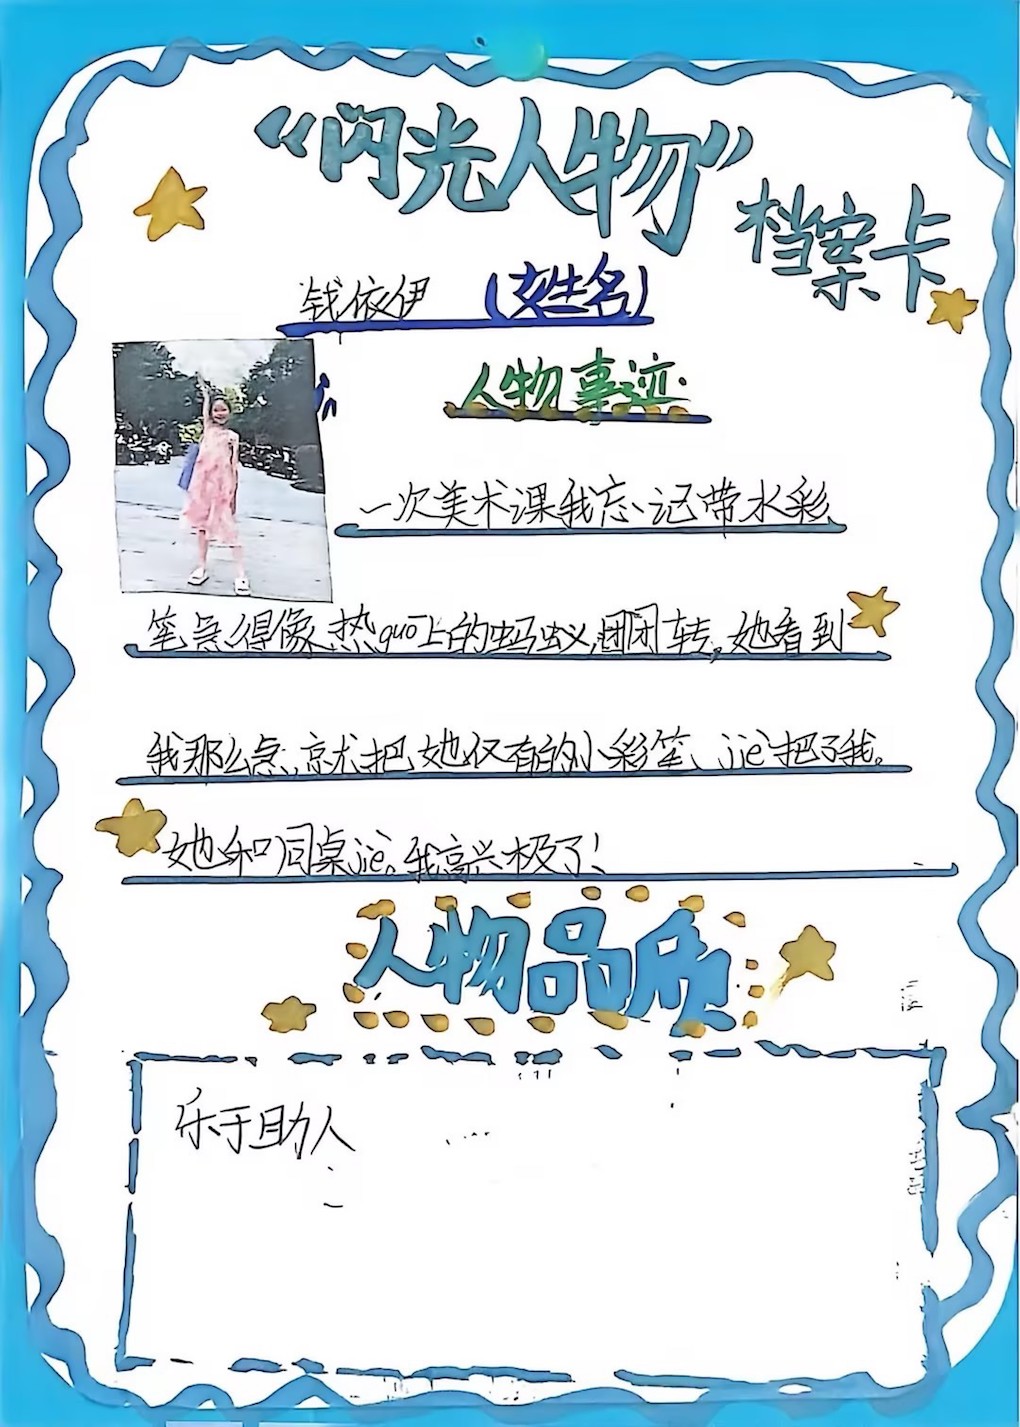 “闪光人物”
档案卡
钱依伊 (姓名)
人物事迹
一次美术课我忘记带水彩
笔,急得像热guō上的蚂蚁团团转,她看到
我那么急,就把她仅有的小彩笔、jiè把了我。
她和同桌jiè。我高兴极了!
人物品质
乐于助人